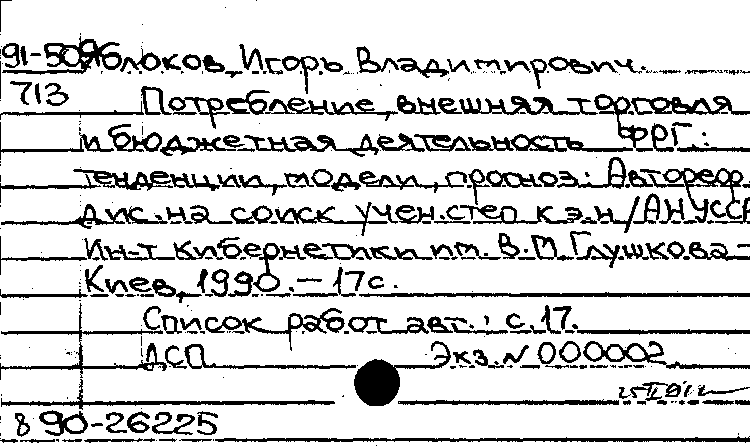 91-509 Яблоков, Игорь Владимирович.
713 Потребление, внешняя торговля
и бюджетная деятельность ФРГ:
тенденции, модели, прогноз: Автореф.
дис. на соиск учен. степ к.э.н/АН УССР
Ин-т кибернетики им. В.М. Глушкова -
Киев, 1990. - 17с.
Список работ авт.: с.17.
ДСП Экз. N 000002
8 90-26225